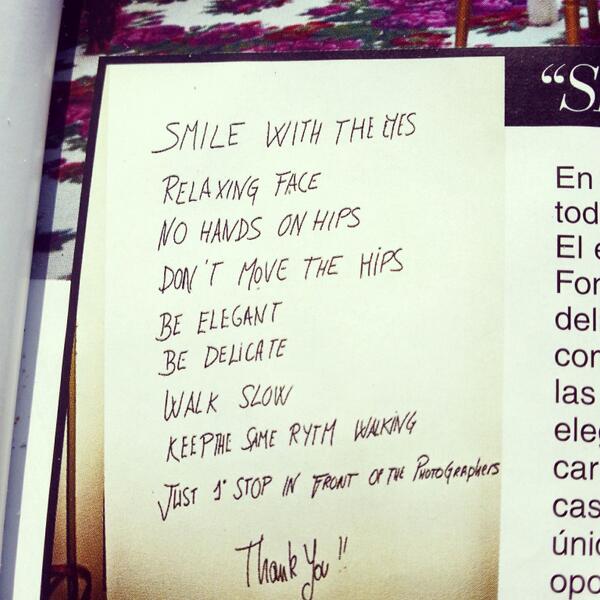 SMILE WITH THE EYES
RELAXING FACE
NO HANDS ON HIPS
DON'T MOVE THE HIPS
BE ELEGANT
BE DELICATE
WALK SLOW
KEEP THE SAME RYTM WALKING
JUST 1° STOP IN FRONT OF THE PHOTOGRAPHERS
Thank You!!
“S
En
tod
El e
For
del
con
las
eleg
car
cas
únic
opo